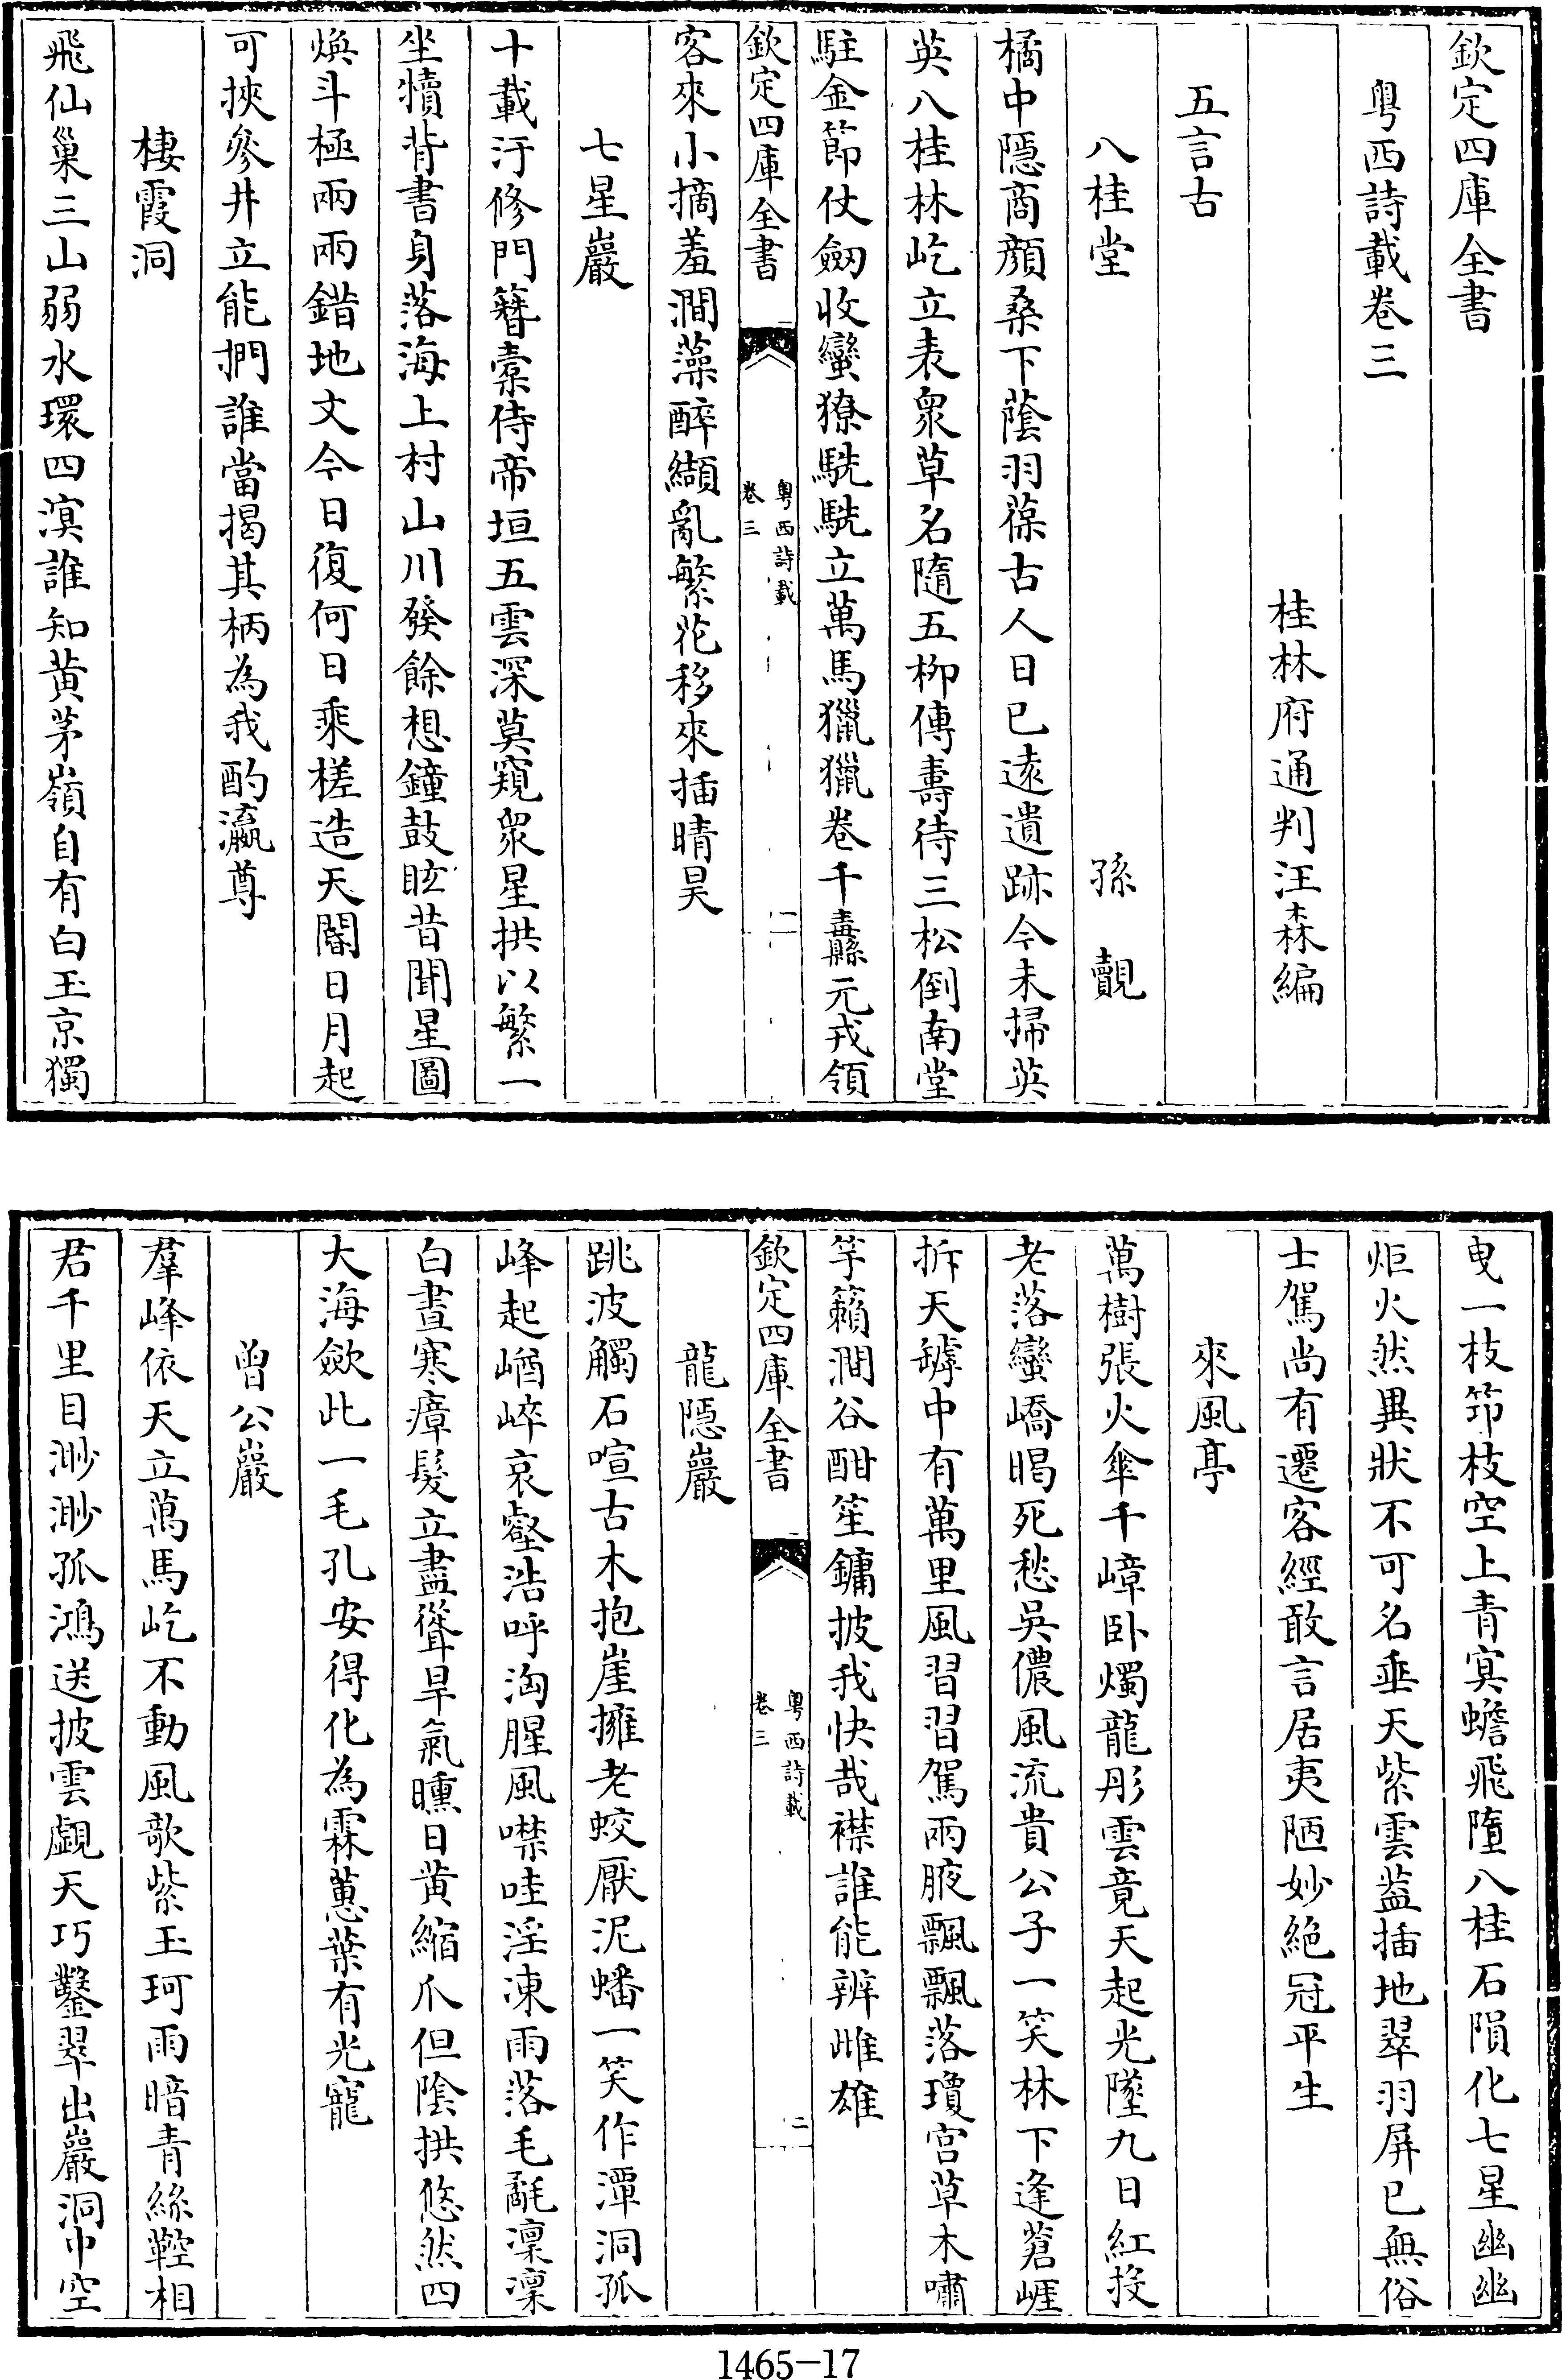 欽定四庫全書
粵西詩載卷三
桂林府通判汪森編
五言古
八桂堂　孫覿
橘中隱商顔桑下蔭羽葆古人日已遠遺跡今未掃英
英八桂林屹立表衆草名隨五柳傳壽待三松倒南堂
駐金節仗劒收蠻獠駪駪立萬馬獵獵卷千纛元戎領
欽定四庫全書　粵西詩載　卷三　一
客來小摘羞澗藻醉纈亂繁花移來插晴昊
七星巖
十載汙修門簪橐侍帝垣五雲深莫窺衆星拱以繁一
坐犢背書身落海上村山川發餘想鐘鼓眩昔聞星圖
煥斗極兩兩錯地文今日復何日乘槎造天閽日月起
可挾參井立能捫誰當揭其柄為我酌瀛尊
棲霞洞
飛仙巢三山弱水環四溟誰知黄茅嶺自有白玉京獨
曵一枝笻枝空上青冥蟾飛墮八桂石隕化七星幽幽
炬火然異狀不可名垂天紫雲葢插地翠羽屏已無俗
士駕尚有遷客經敢言居夷陋妙絶冠平生
來風亭
萬樹張火傘千嶂卧燭龍彤雲竟天起光墜九日紅投
老落蠻嶠暍死愁吳儂風流貴公子一笑林下逢蒼崖
拆天罅中有萬里風習習駕兩腋飄飄落瓊宫草木嘯
竽籟澗谷酣笙鏞披我快哉襟誰能辨雌雄
欽定四庫全書　粵西詩載　卷三　二
龍隱巖
跳波觸石喧古木抱崖擁老蛟厭泥蟠一笑作潭洞孤
峰起崷崒哀壑浩呼洶腥風噤哇淫凍雨落毛氄凜凜
白晝寒瘴髮立盡聳旱氣曛日黄縮爪但陰拱悠然四
大海歛此一毛孔安得化為霖蔥葉有光寵
曾公巖
羣峰依天立萬馬屹不動風欹紫玉珂雨暗青絲鞚相
君千里目渺渺孤鴻送披雲覷天巧鑿翠出巖洞中空
1465-17